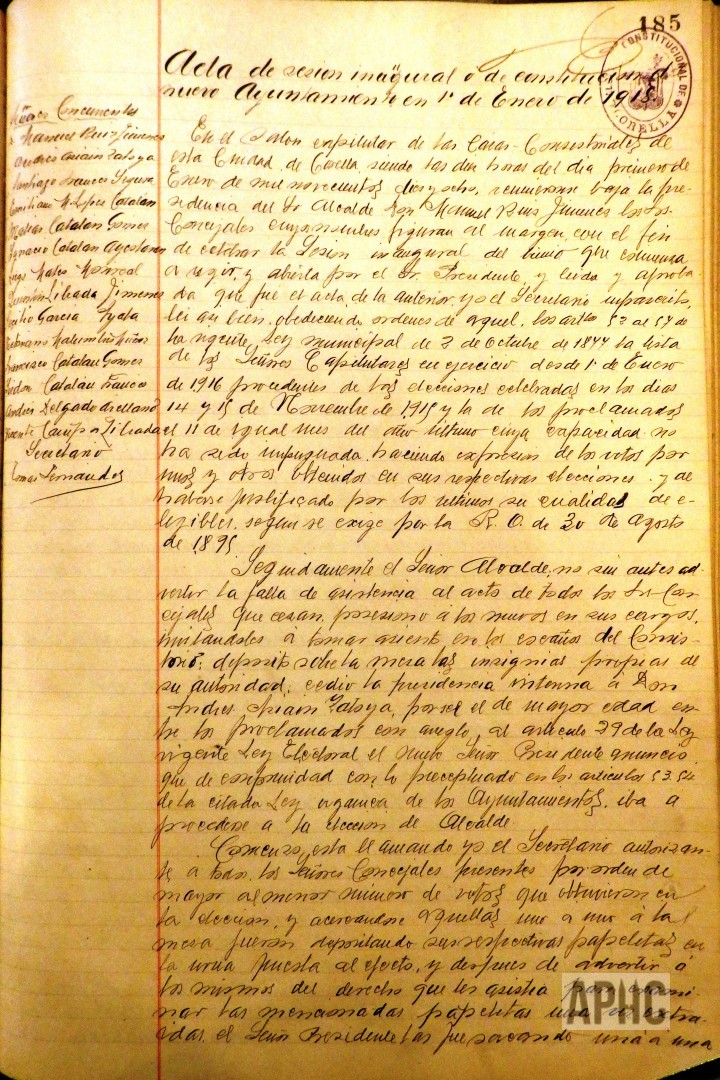 185
CONSTITUCIONAL DE CORELLA
Acta de sesion inaugural o de constitucion del
nuevo Ayuntamiento en 1º de Enero de 1918.
Señores Concurrentes
Manuel Ruiz Jimenez
Andres Arain Zaloya
Santiago Frances Segura
Emiliano Mª Lopez Catalan
Matias Catalan Gomez
Ignacio Catalan Ayestaran
Jorge Mateo Monreal
Liñada Jimenez
Cecilio Garcia Ayala
Malumbres Muñoz
Francisco Catalan Gomez
Isidro Catalan Frances
Andres Delgado Arellano
Vicente Campos Liñada
Secretario
Tomas Fernandez
En el Salon capitular de las Casas-Consistoriales de
esta Ciudad de Corella, siendo las diez horas del dia primero de
Enero de mil novecientos diez y ocho, reunieronse bajo la pre-
sidencia del Sr Alcalde Don Manuel Ruiz Jimenez los Srs
Concejales cuyos nombres figuran al margen con el fin
de celebrar la Sesion inaugural del bienio que comienza
a regir, y abierta por el Sr. Presidente y leida y aproba-
da que fue el acta de la anterior, yo el Secretario infrascrito,
lei au bien, obedeciendo ordenes de aquel, los artos 52 al 57 de
la vigente Ley municipal de 2 de Octubre de 1877 la lista
de los Señores Capitulares en ejercicio desde 1º de Enero
de 1916 procedentes de las elecciones celebradas en los dias
14 y 15 de Noviembre de 1915 y la de los proclamados
el 11 de igual mes del año ultimo cuya capacidad no
ha sido impugnada, haciendo expresion de los votos por
unos y otros obtenidos en sus respectivas elecciones y de
haberse justificado por los ultimos su cualidad de e-
legibles, segun se exige por la R. O. de 30 de Agosto
de 1895
Seguidamente el Señor Alcalde, no sin antes ad-
vertir la falta de asistencia al acto de todos los Srs Con-
cejales que cesan, posesiono á los nuevos en sus cargos,
invitandoles á tomar asiento en los escaños del Consis-
torio, deposito sobre la mesa las insignias propias de
su autoridad, cedio la presidencia interina á Don
Andres Arain Zaloya, por ser el de mayor edad en-
tre los proclamados con arreglo al articulo 29 de la Ley
vigente Ley Electoral el nuevo Señor Presidente anuncio
que de conformidad con lo preceptuado en los articulos 53. 54
de la citada Ley organica de los Ayuntamientos, iba a
procederse a la eleccion de Alcalde.
Comenzo esta llamando yo el Secretario autorizan-
te a todos los Señores Concejales presentes por orden de
mayor al menor numero de votos que obtuvieron en
la eleccion, y acercandose aquellos uno a uno á la
mesa fueron depositando sus respectivas papeletas en
la urna puesta al efecto, y despues de advertir á
los mismos del derecho que les asistia para exami-
nar las mencionadas papeletas una vez extra-
idas, el Señor Presidente las fue sacando una a una
APHC